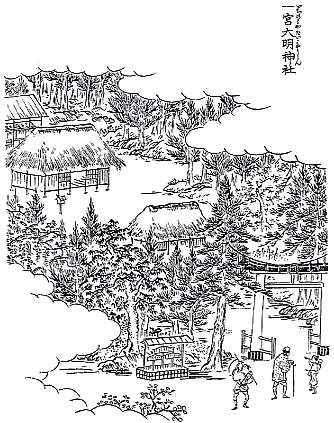 一宮大明神社